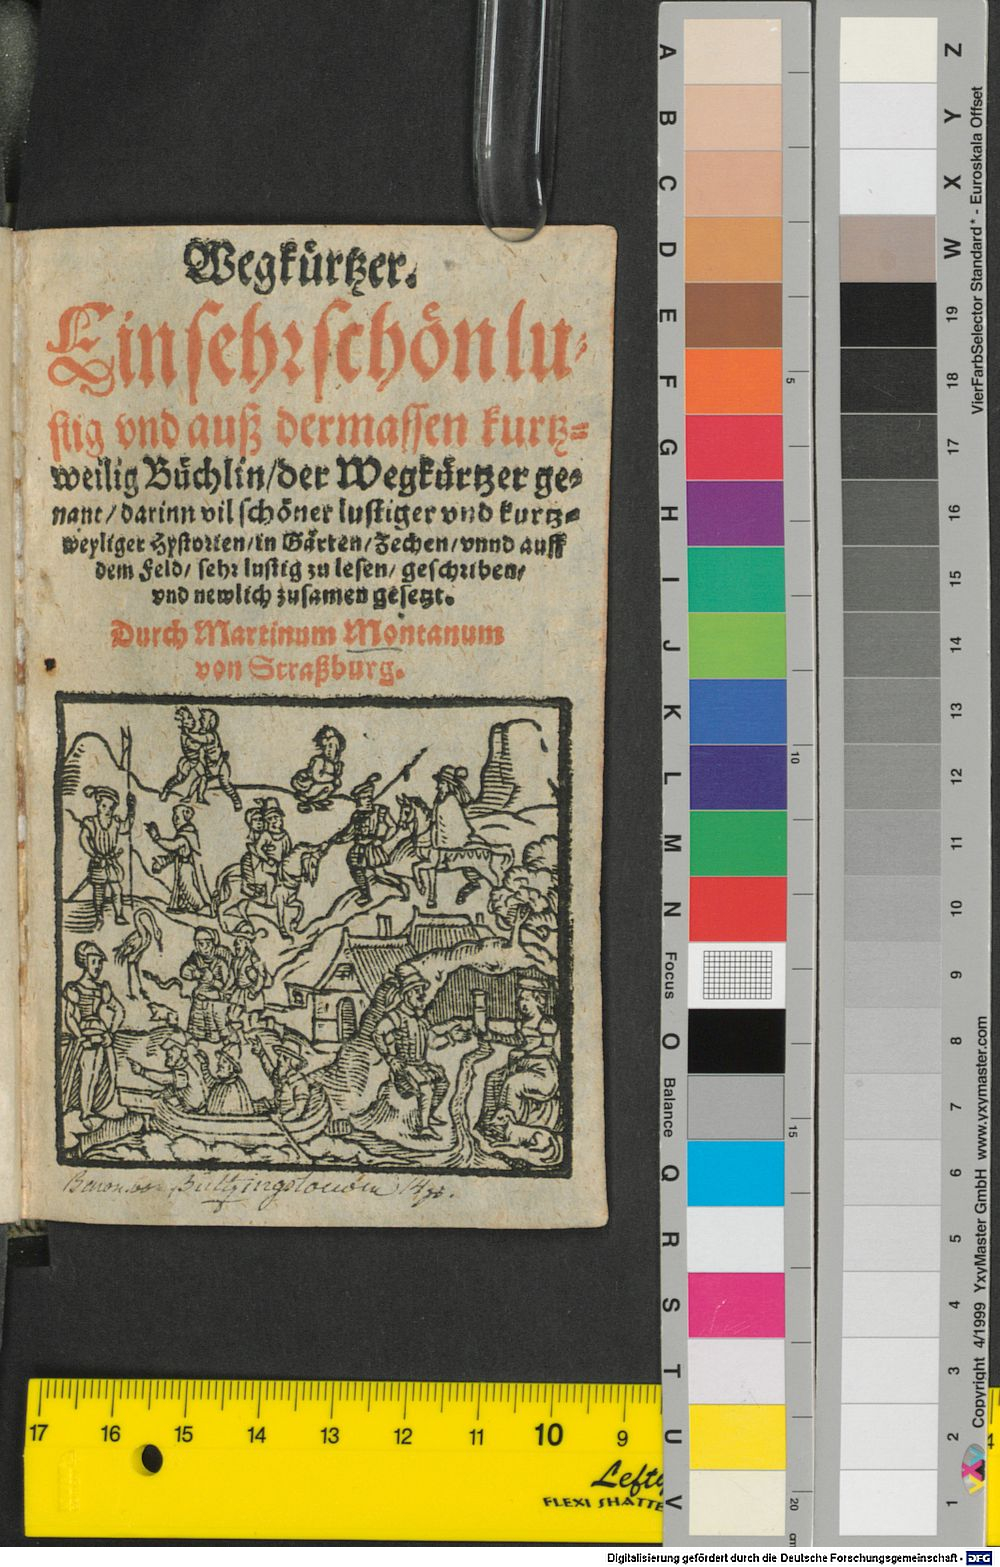 Wegkürtzer.
Ein sehr schön lu-
stig vnd auß dermassen kurtz-
weilig Büchlin/der Wegkürtzer ge-
nant/darinn vil schöner lustiger vnd kurtz-
weyliger Hystorien/in Gärten/Zechen/vnnd auff
dem Feld/ sehr lustig zu lesen/ geschriben/
vnd newlich zusamen gesetzt.
Durch Martinum Montanum
von Straßburg.
A
B
C
D
E
F
G
H
I
J
K
L
M
N
Focus
O
Balance
Q
R
S
T
U
V
5
10
15
20
cm
Z
Y
X
W
19
18
17
16
15
14
13
12
11
10
9
8
7
6
5
4
3
2
1
VierFarbSelector Standard* - Euroskala Offset
Copyright 4/1999 YxyMaster GmbH www.yxymaster.com
17 16 15 14 13 12 11 10 9
FLEXI
Digitalisierung gefördert durch die Deutsche Forschungsgemeinschaft - DFG